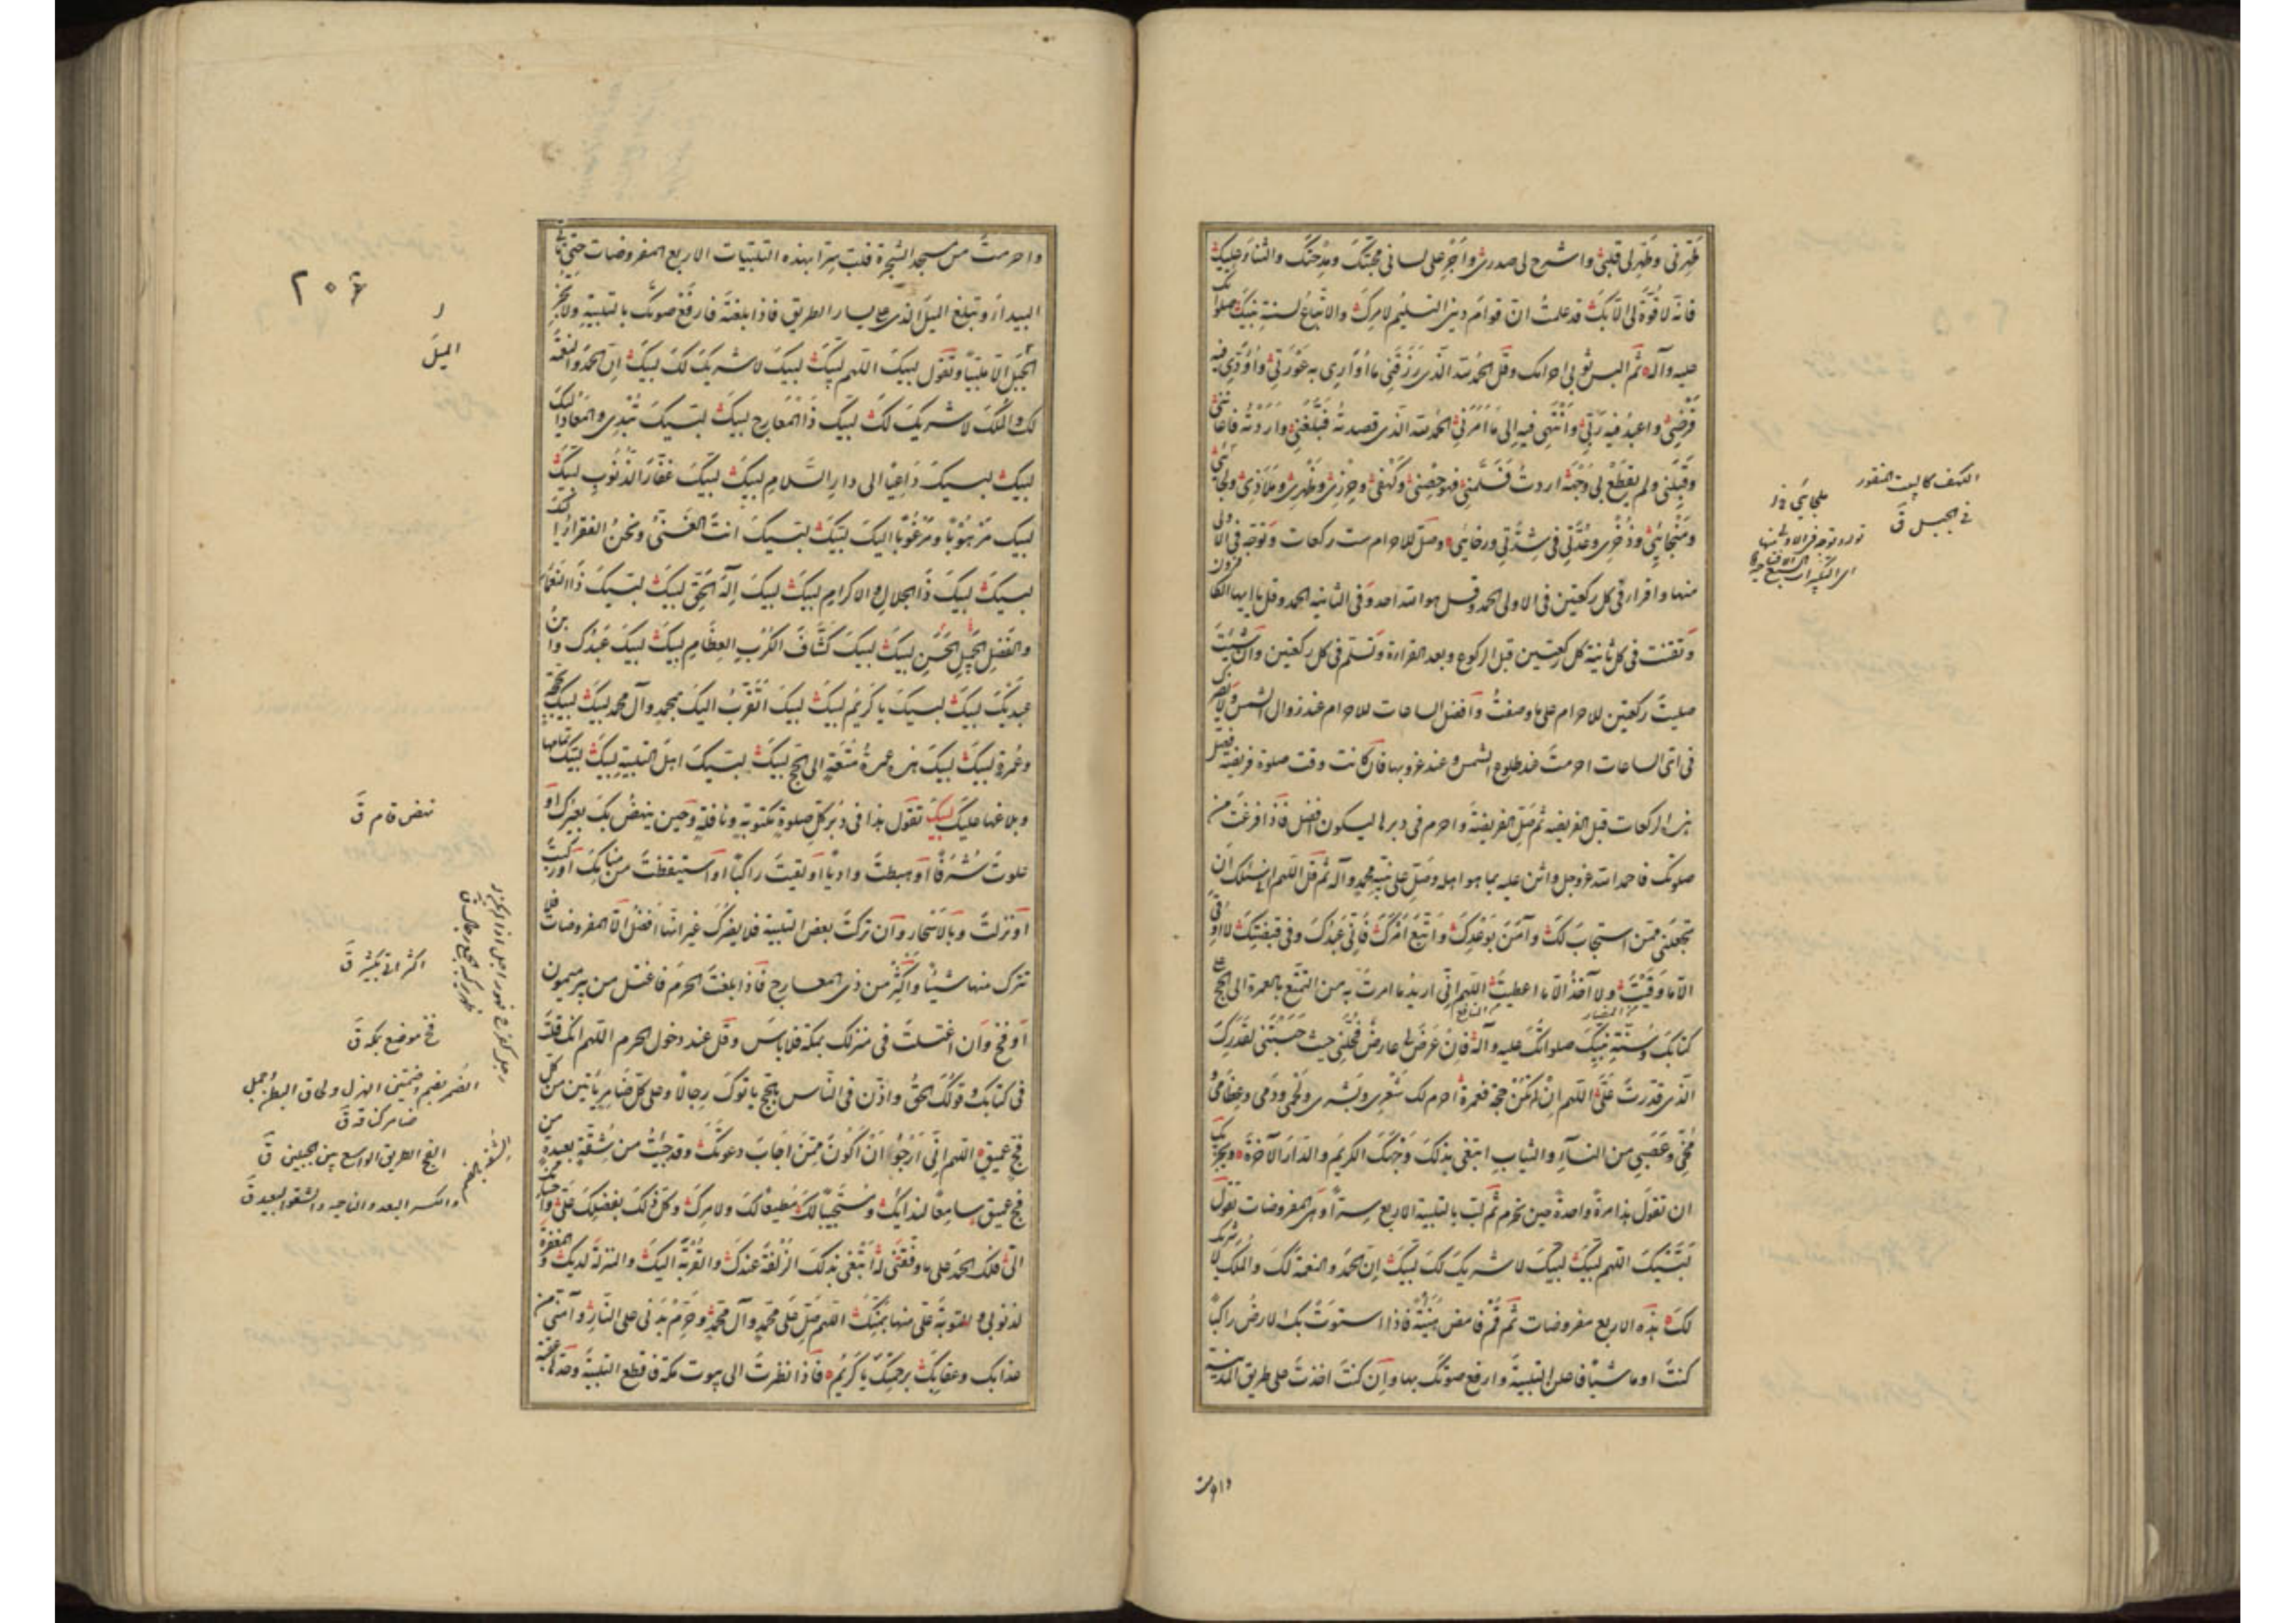 طَهِّرني وَطَهِّر لي قلبي واشرح لي صدري وَاَجْرِ على لساني محبّتَكَ ومِدْحَتَكَ والثناءَ عليكَ
فانّه لا قوّةَ لي الّا بكَ قد علمتُ انّ قوام ديني التسليمُ لامركَ والاتّباعُ لسنةِ نبيّكَ صلواتك
عليه وآله ثم البس ثوبي احرامك وقل الحمد لله الّذي رَزَقَني ما اُوَاري به عَوْرَتي وَاُؤَدّي فيه
فَرْضي واعبدُ فيه ربّي وَاَنْتَهي فيه الى ما اَمَرَني الحمد لله الّذي قصدتهُ فَبَلَّغَني واردتهُ فاعانني
وَقَبِلَني ولم يقطَعْ بي وَجْهَهُ اردتُ فَسَلَّمَني فهو حِصْني وكَهْفي وحِرْزي وظَهْري ومَلَاذي ومَلْجائي
ومَنْجائي وذُخْري وعُدَّتي في شِدَّتي ورخائي وصلّ للاحرام ست ركعات وتوجّه في الاولى
منها واقرأ في كل ركعتين في الاولى الحمد وقل هو الله احد وفي الثانية الحمد وقل يا ايها الكافرون
وتقنت في كل ثانية كل ركعتين قبل الركوع وبعد القراءة وتسلّم في كل ركعتين وان شئت
صليت ركعتين للاحرام على ما وصفتُ وافضل الساعات للاحرام عند زوال الشمس ولا يضرّك
في اىّ الساعات احرمتَ عند طلوع الشمس وعند غروبها فان كانت وقت صلوة فريضة فصلّ
هذه الركعات قبل الفريضة ثم صلّ الفريضة واحرم في دبرها ليكون افضل فاذا فرغت من
صلوتك فاحمد الله عز وجل واثن عليه بما هو اهله وصلّ على نبيّه محمد وآله ثم قل اللهم اني اسئلك ان
تجعلني ممن استجاب لكَ وآمَنَ بوَعْدِكَ واتَّبَعَ اَمْرَكَ فانّي عَبْدُكَ وفي قبضتِكَ لا اُوقى
الّا ما وَقَيْتَ ولا آخذُ الّا ما اعطيتَ اللهم انّي اريدُ ما امرتَ به من التمتّع بالعمرة الى الحج على
كتابكَ وسُنّةِ نبيّكَ صلواتكَ عليه وآله فان عَرَضَ لي عارضٌ فحُلَّني حيث حَبَسْتَني لقَدَرِكَ
الّذي قدّرتَ عَلَيَّ اللهم ان لم تكن حجة فعمرةً احرم لك شَعْري وبَشَري ولحمي ودَمي وعِظامي
مُخّي وعَصَبي من النساءِ والثيابِ ابتغي بذلكَ وَجْهَكَ الكريمَ والدّارَ الآخرةَ ويجزيك
ان تقولَ هذا مرّةً واحدةً حين تحرم ثم لبّ بالتلبية الاربع سرّاً وهي المفروضات تقول
لبّيكَ اللهم لبّيكَ لبّيكَ لا شريكَ لكَ لبّيكَ اِنّ الحمدَ والنعمةَ لكَ والملكَ لا شريك
لكَ هذه الاربع مفروضات ثم قُمْ فامض هُنَيْئَةً فاذا استوتْ بك الارضُ راكباً
كنتَ او ماشياً فاعلن التلبية وارفع صوتك بها وان كنتَ اخذتَ على طريق المدينة
واحرمت
الكهف كالبيت المنقور
في الجبل ق
واحرمتَ من مسجد الشجرة فلبّ سرّاً بهذه التلبيات الاربع المفروضات حتى تأتي
البيداءَ وتبلغ الميلَ الذي على يسار الطريق فاذا بلغتَهُ فارفَعْ صوتكَ بالتلبيةِ ولا تجز
الميل الّا ملبّياً وتقول لبيكَ اللهم لبيكَ لبيكَ لا شريكَ لكَ لبيكَ اِنّ الحمدَ والنعمة
لك والملكَ لا شريكَ لكَ لبيكَ ذَا المعَارجِ لبيكَ لبيكَ تُبْدِئ والمعَادُ اليك
لبيكَ لبيكَ دَاعِياً الى دارِ السَّلامِ لبيكَ لبيكَ غَفّارَ الذُّنُوبِ لبيكَ
لبيك مَرْهُوباً ومَرْغُوباً اليكَ لبيكَ لبيكَ انتَ الغَنِيُّ ونحنُ الفقراءُ اليك
لبيكَ لبيكَ ذَا الجلالِ والاكرامِ لبيكَ لبيكَ اِلهَ الحَقِّ لبيكَ لبيكَ ذَا النعماءِ
والفضلِ الجميلِ الحَسَنِ لبيكَ لبيكَ كَشّافَ الكُرَبِ العِظَامِ لبيكَ لبيكَ عَبْدُكَ وابن
عبدَيْكَ لبيكَ لبيكَ يا كَرِيمُ لبيكَ لبيكَ اَتَقَرَّبُ اليكَ بمحمدٍ وآل محمد لبيكَ لبيكَ بحجّة
وعُمرة لبيكَ لبيكَ هذه عمرةُ مُتْعَةٍ الى الحجّ لبيكَ لبيكَ اهلَ التلبيةِ لبيكَ لبيكَ تمامها
وبلاغها عليكَ لبيكَ تقول هذا في دُبُرِ كلّ صلوةٍ مكتوبةٍ ونافلةٍ وحين ينهضُ بكَ بعيرك او
علوتَ شُرُفاً او هبطتَ وادياً او لقيتَ راكباً او استيقظتَ من منامِكَ او ركبتَ
او نزلتَ وبالاسحار وان تركتَ بعض التلبية فلا يضرّكَ غير انّها افضلُ الّا المفروضات فلا
تترك منها شيئاً واَكْثِرْ من ذي المعارج فاذا بلغتَ الحرَمَ فاغتسل من بير ميمون
او فخّ وان اغتسلتَ في منزلك بمكّة فلا بأسَ وقل عند دخول الحرم اللهم انك قلتَ
في كتابكَ وقولُكَ الحَقُّ واذّن في النّاس بالحَجّ ياتوكَ رجالاً وعلى كلّ ضَامِرٍ يَأتينَ من كل
فجّ عميقٍ اللهم انّي اَرْجُو اَنْ اَكُونَ مِمّنْ اَجَابَ دعوتَكَ وقد جِئتُ من شُقّةٍ بعيدةٍ من
فجّ عميقٍ سامِعاً لندائِكَ ومُسْتَجِيباً لكَ مُطيعاً لكَ ولامركَ وكلّ ذلكَ بفضلِكَ عَلَيَّ واحسانك
الىّ فلكَ الحمدُ على ما وفّقتَني لهُ اَبْتَغي بذلكَ الزّلفةَ عندكَ والقُرْبةَ اليكَ والمنزلةَ لديكَ والمغفرة
لذنوبي والتوبةَ عليّ منها بمنّكَ اللهم صلّ على محمّدٍ وآل محمّدٍ وحَرّمْ بدَني على النّارِ وآمنّي من
عذابك وعقابِكَ برحمتِكَ يا كريمُ فاذا نظرتَ الى بيوت مكّة فاقطع التلبيةَ وحدّها عقبة
٢٠٦
الميل
نهض قام ق
اكثر اتى بكثير ق
فخ موضع بمكة ق
الضمر بضم وضمتين الهزل ولحاق البطن جمل
ضامر كناقة ق
الفج الطريق الواسع بين جبلين ق
والكسر البعد والناحية والشقة البعيد ق